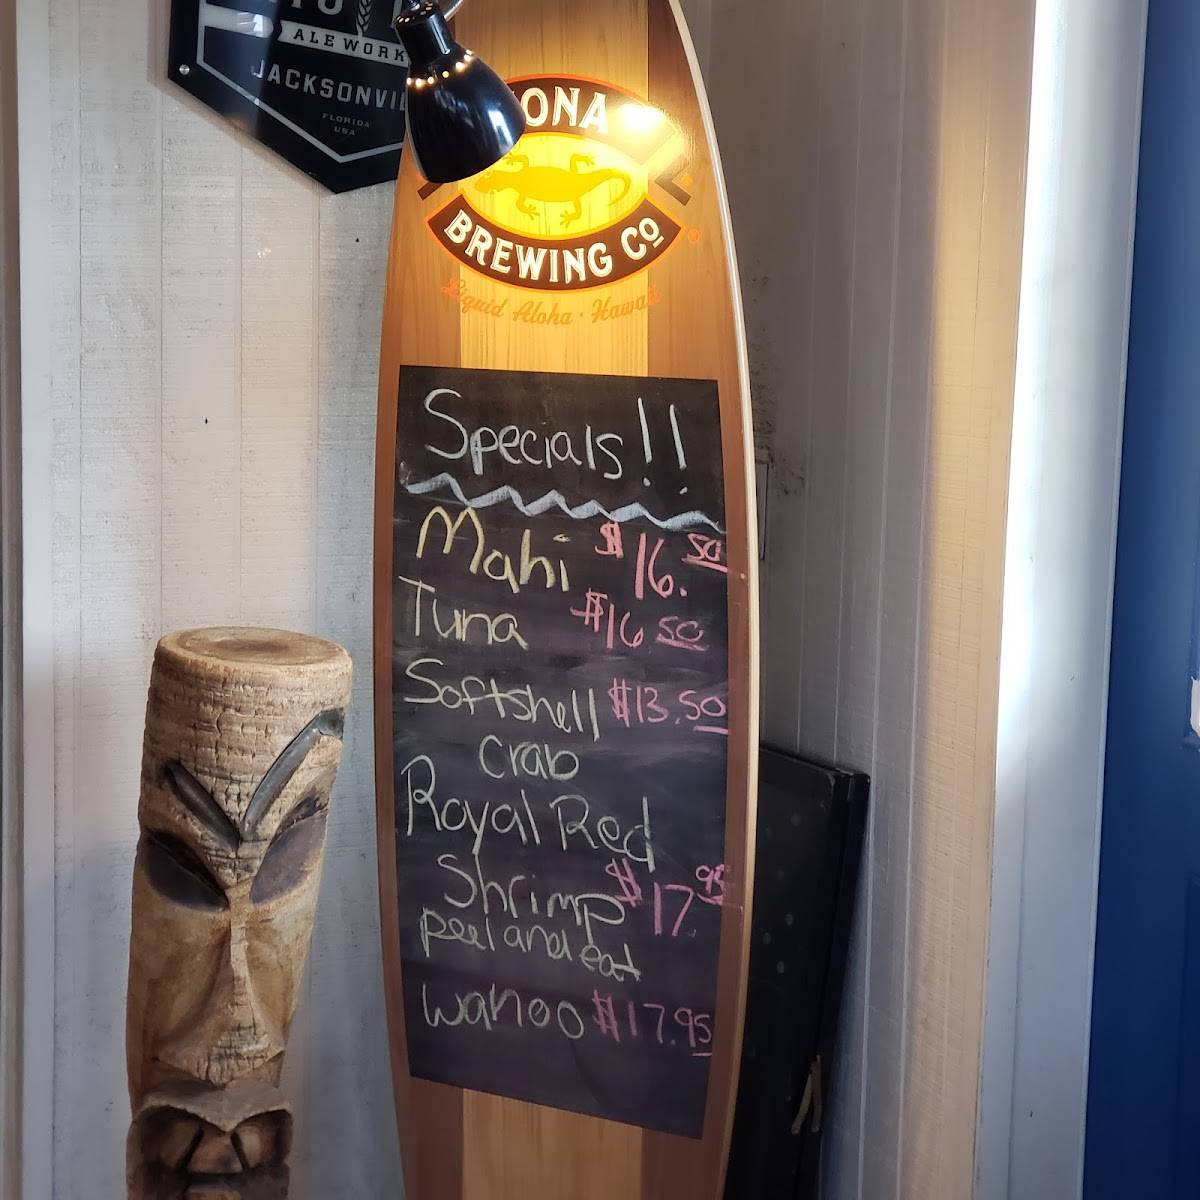 ALE WORK
JACKSONVIL
FLORIDA
USA
ONA
BREWING Co
Liquid Aloha · Hawaii
Specials!!
Mahi $16.50
Tuna $16 50
Softshell $13.50
crab
Royal Red
Shrimp $17.95
peel and eat
wahoo $17.95